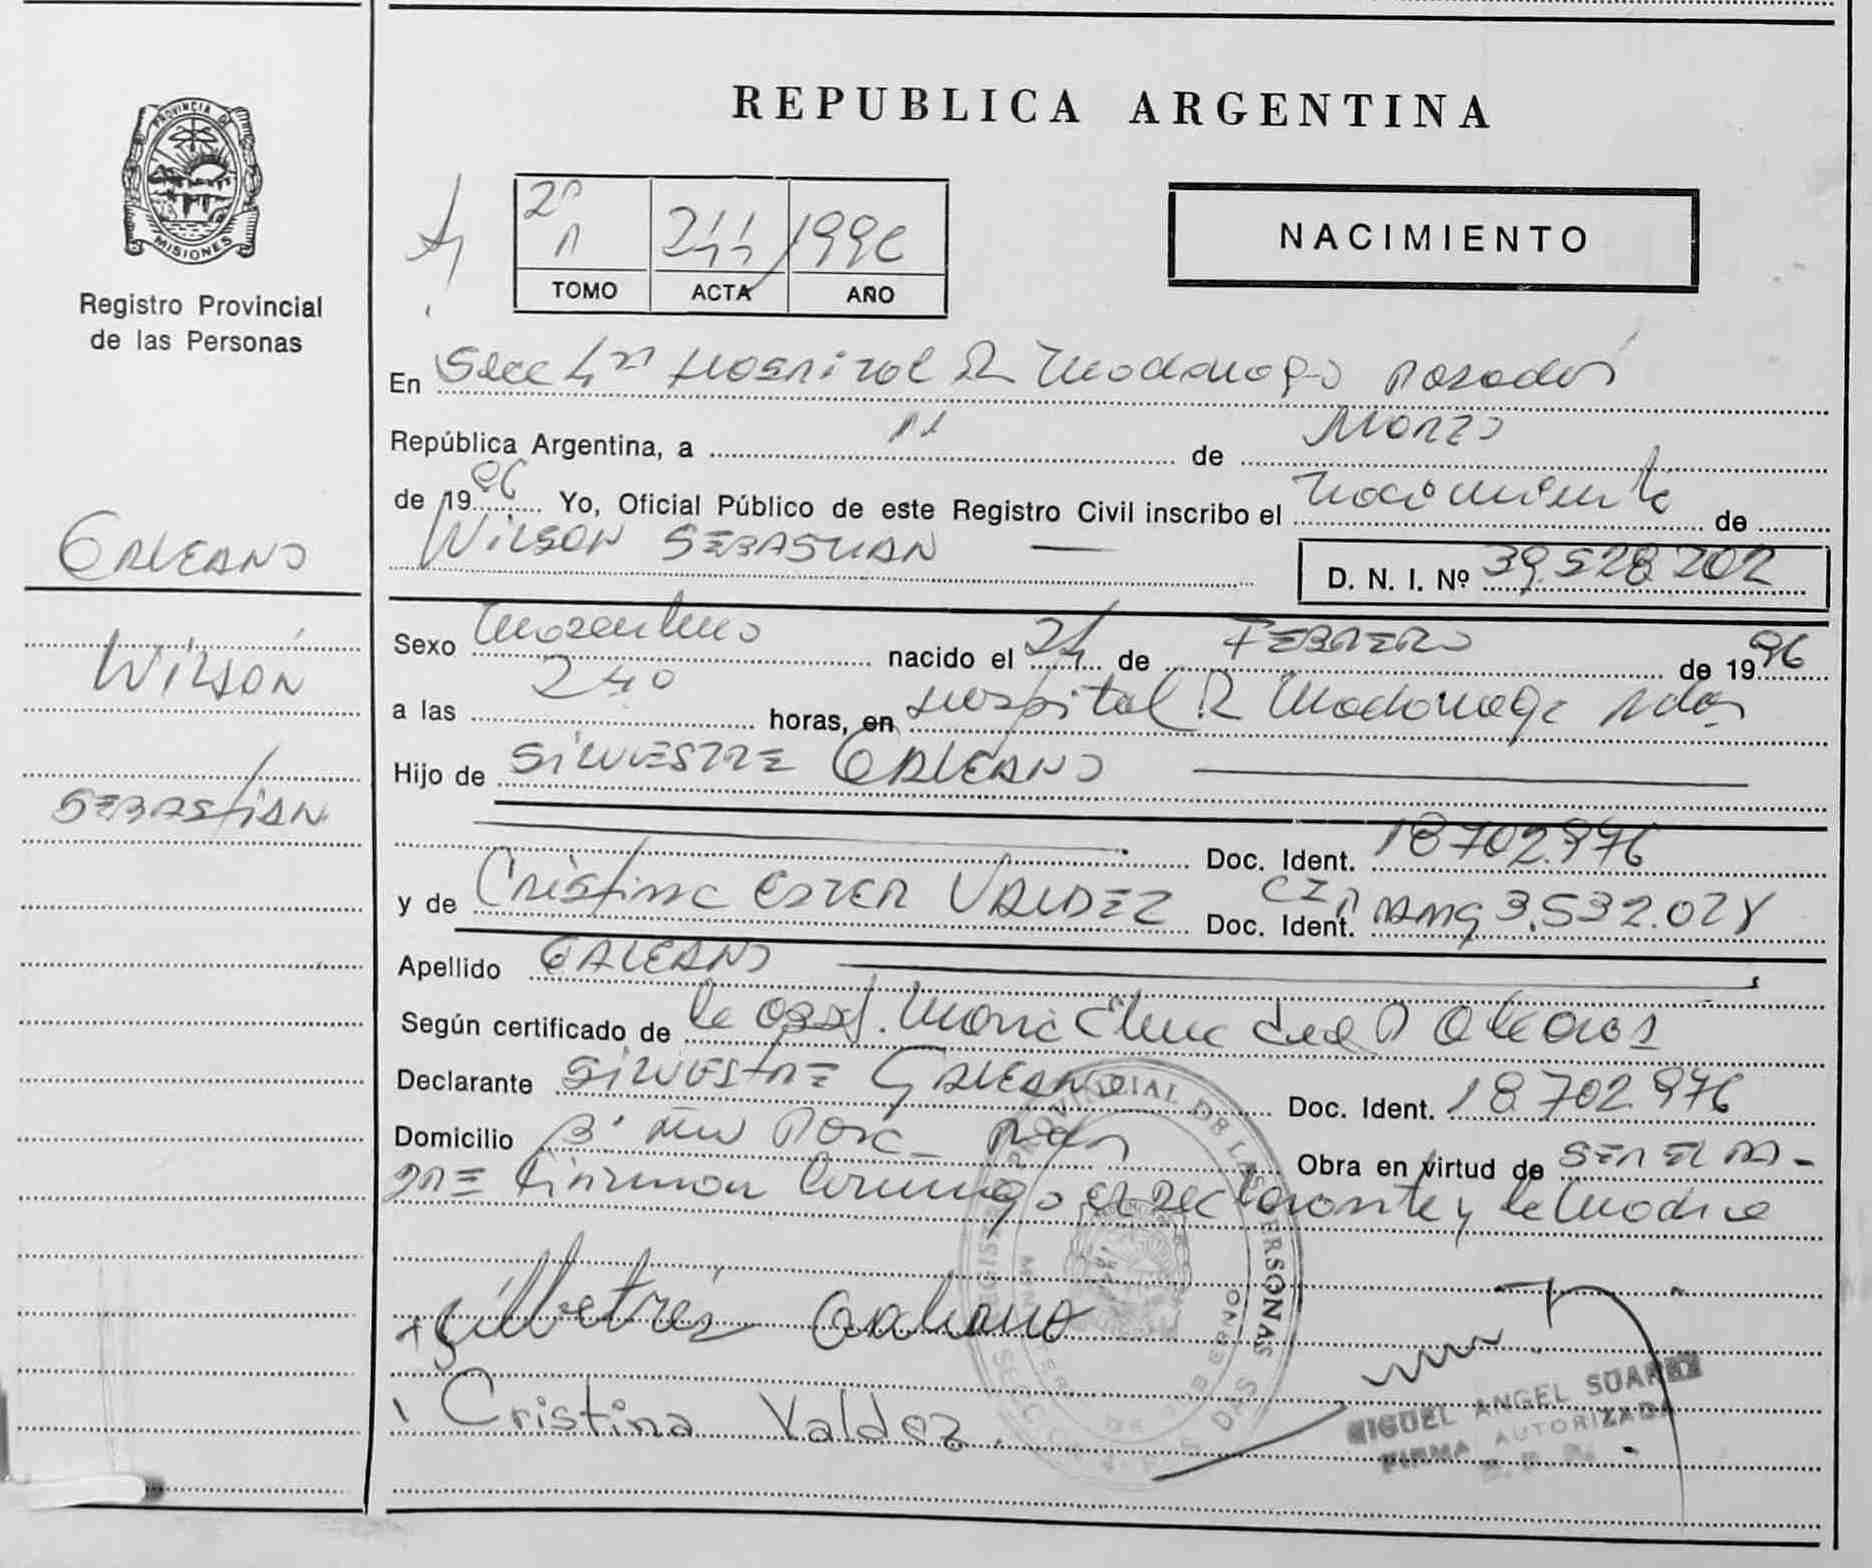 PROVINCIA DE
MISIONES
Registro Provincial
de las Personas
GALEANO
WILSON
SEBASTIAN
REPUBLICA ARGENTINA
2º 1996
TOMO ACTA AÑO
NACIMIENTO
En Secc 4ª Hospital R Madariaga Posadas
República Argentina, a 11 de Marzo
de 1996 Yo, Oficial Público de este Registro Civil inscribo el nacimiento de
WILSON SEBASTIAN — D. N. I. Nº 39.528.202
Sexo masculino nacido el 24 de FEBRERO de 1996
a las 240 horas, en Hospital R Madariaga Pdas
Hijo de SILVESTRE GALEANO
Doc. Ident. 18.702.976
y de Cristina ESTER VALDEZ Doc. Ident. 3.532.028
Apellido GALEANO
Según certificado de la obst. Maria
Declarante SILVESTRE GALEANO Doc. Ident. 18.702.976
Domicilio Obra en virtud de SER EL PA-
DRE firman conmigo el declarante y la madre
Galeano
Cristina Valdez.
REGISTRO PROVINCIAL DE LAS PERSONAS
MIGUEL ANGEL SUAREZ
FIRMA AUTORIZADA